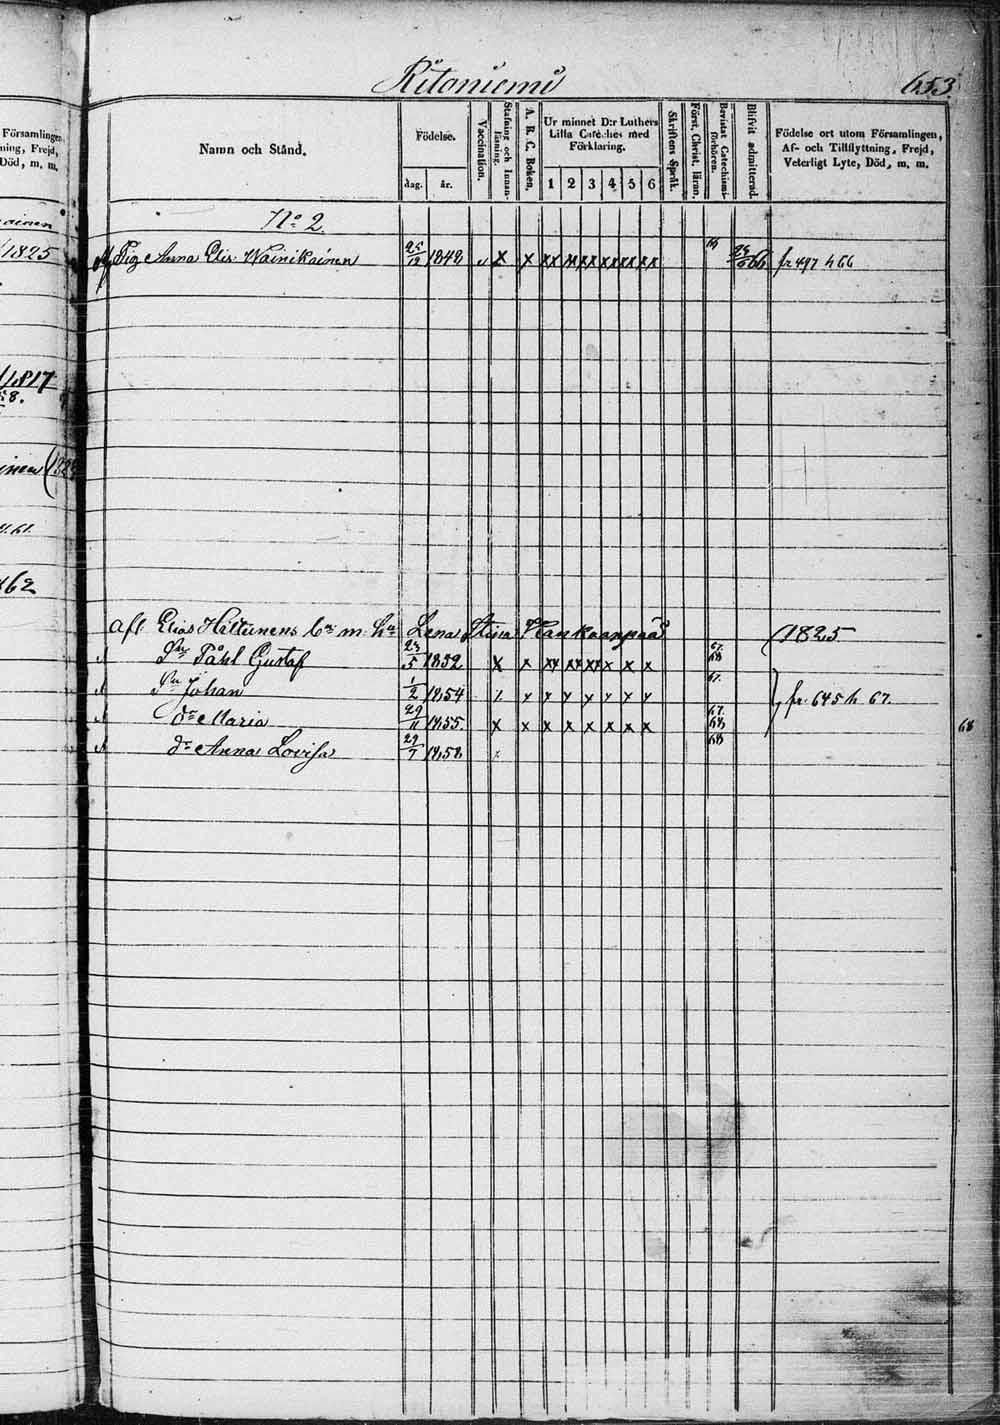 Ritoniemi 653.
Församlingen,
ning, Frejd,
Död, m. m.
Namn och Stånd.
Födelse.
dag. år.
Vaccination.
Stafning och Innanläsning.
A. B. C. Boken.
Ur minnet D:r Luthers
Lilla Cateches med
Förklaring.
1 2 3 4 5 6
Skriftens Språk.
Först. Christ. läran.
Bevistat Catechismiförhören.
Blifvit admitterad.
Födelse ort utom Församlingen,
Af- och Tillflyttning, Frejd,
Veterligt Lyte, Död, m. m.
No 2.
ainen
1825
Pig Anna Elis. Wainikainen 25/12 1848 x x xx xx xx xx xx 66 66 fr 497 h 66
1817
58.
inen
61.
62
afl. Elias Hiltunens Enk. m. ha Lena Stina Kankaanpää (1825
Sn Påhl Gustaf 23/5 1852 x x xx xx xx x x x 67. 68
Sn Johan 1/2 1854 x x x x x x x x 67. fr. 645 h 67.
dr Maria 29/11 1855. x x x x x x x x 67. 68 68
dr Anna Lovisa 29/7 1858 x 68